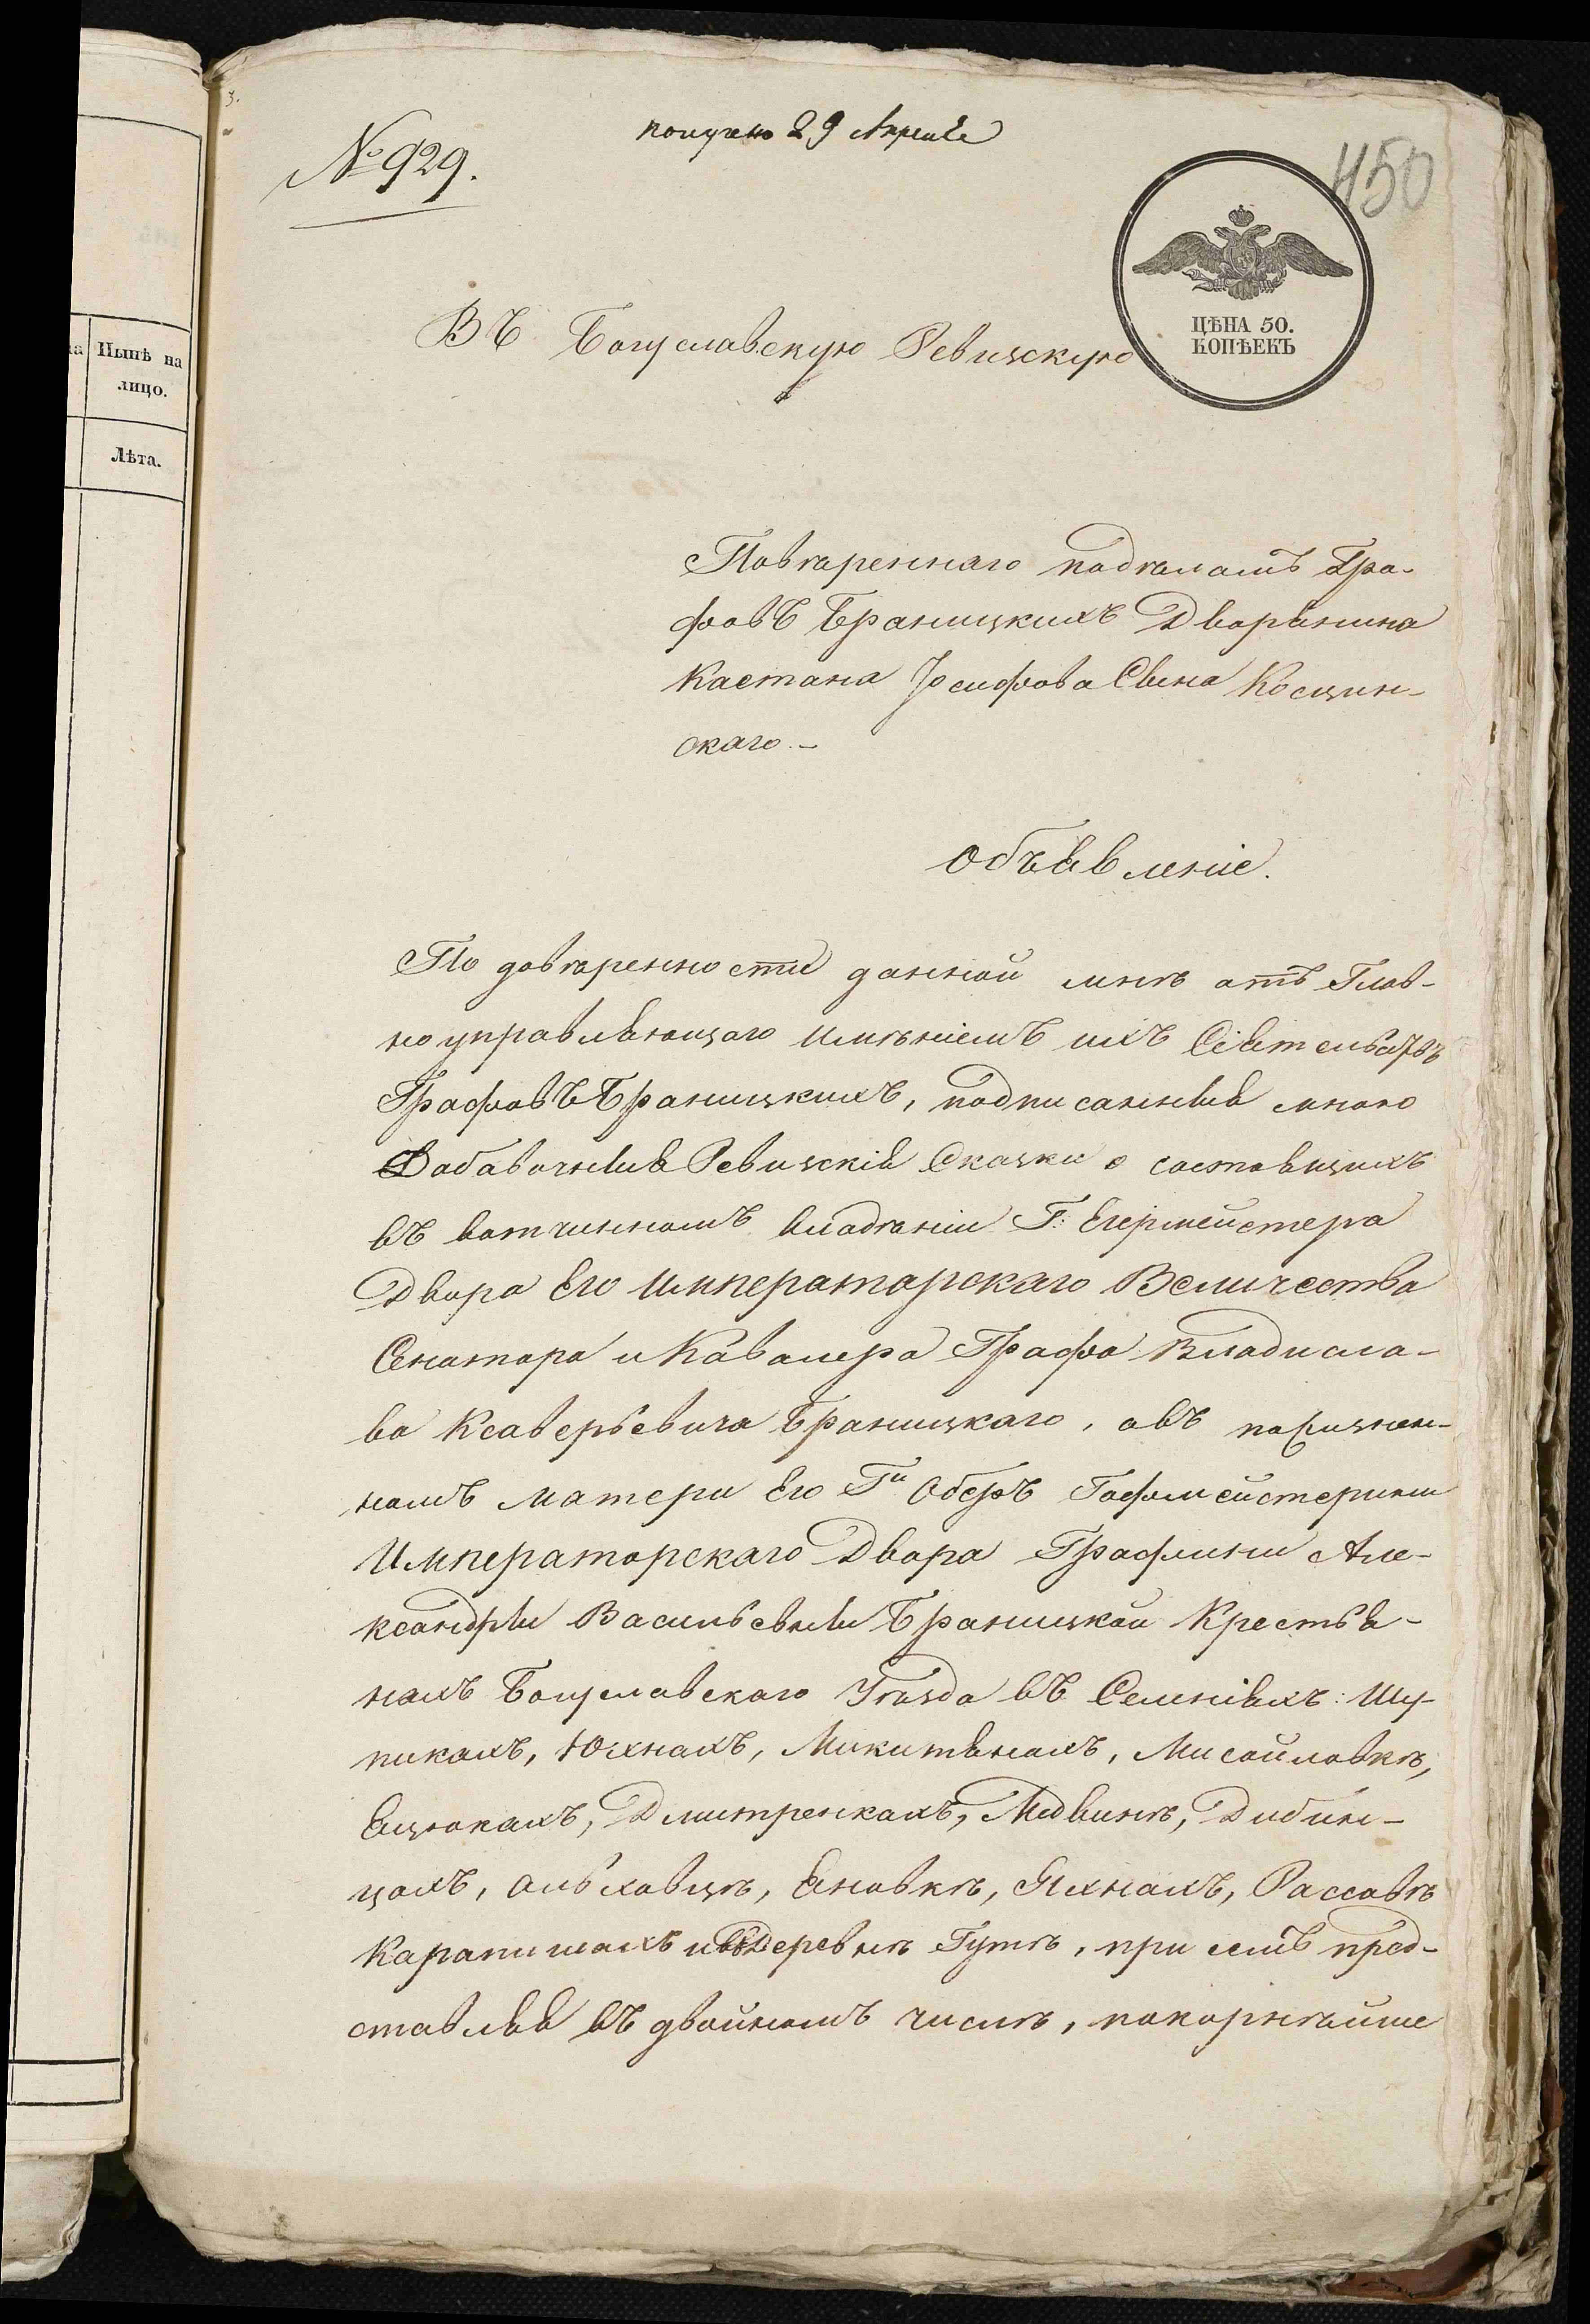 получено 29 Апреля
№ 929.
450
ЦѢНА 50.
КОПѢЕКЪ
Въ Богуславскую Ревизскую
Нынѣ на
лицо.
Лѣта.
Повѣреннаго по дѣламъ Гра-
фовъ Браницкихъ Дворянина
Каетана Іосифова Сына Косцин-
скаго.-
Объявленіе.
По довѣренности данной мнѣ отъ Глав-
ноуправляющаго имѣніемъ ихъ Сіятельствъ
Графовъ Браницкихъ, подписанныя мною
Добавочныя Ревизскія Сказки о состоящихъ
въ вотчинномъ владѣніи Г: Егермейстера
Двора Его Императорскаго Величества
Сенатора и Кавалера Графа Владисла-
ва Ксаверьевича Браницкаго, а въ пожизнен-
номъ матери Его Г-и Оберъ Гофмейстерины
Императорскаго Двора Графини Але-
ксандры Васильевны Браницкой Крестья-
нахъ Богуславскаго Уѣзда въ Селеніяхъ: Шу-
пикахъ, Юхнахъ, Микитянахъ, Мисайловкѣ,
Ещюкахъ, Дмитренкахъ, Медвинѣ, Дибин-
цахъ, Ольховцѣ, Яновкѣ, Яхнахъ, Россавѣ
Карапишахъ и въ Деревнѣ Гутѣ, при семъ пред-
ставляя въ двойномъ числѣ, покорнѣйше